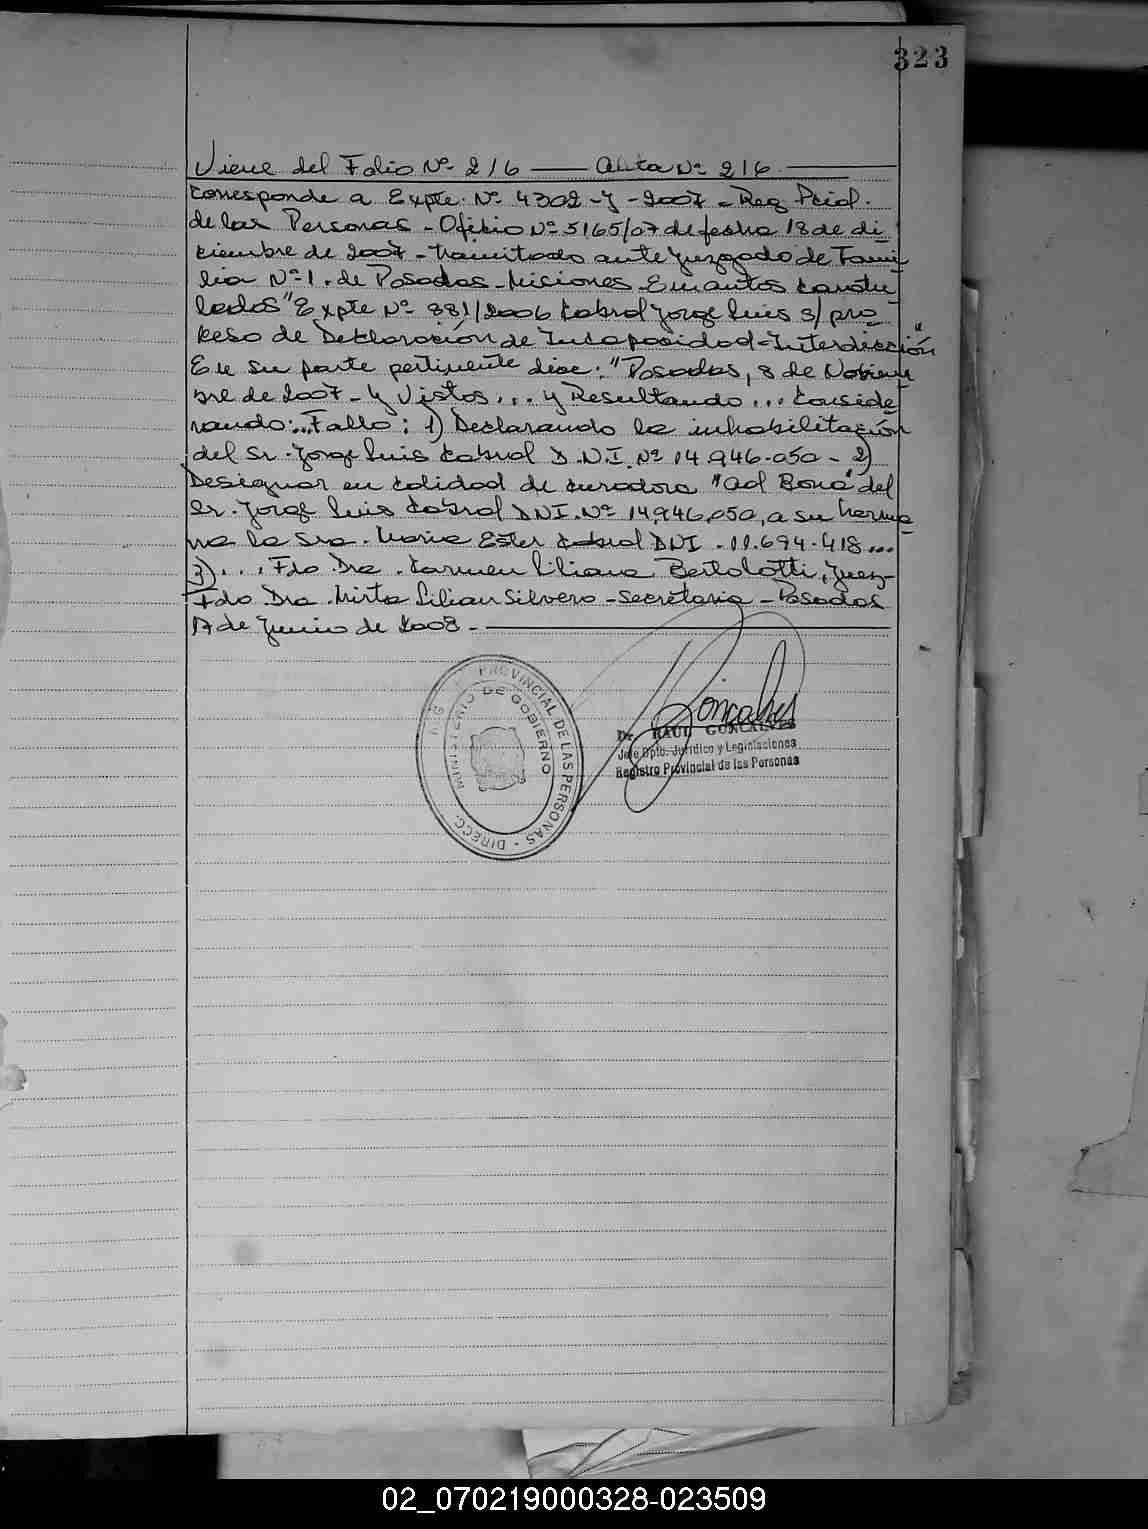 323
Viene del Folio Nº 216 — Acta Nº 216 —
Corresponde a Expte. Nº 4302-Y-2007 - Reg Pcial.
de las Personas - Oficio Nº 5165/07 de fecha 18 de di
ciembre de 2007 - tramitado ante Juzgado de Fami
lia Nº 1. de Posadas - Misiones - En autos caratu
lados "Expte Nº 881/2006 Cabral Jorge Luis s/ pro
ceso de Declaración de Incapacidad - Interdicción"
En su parte pertinente dice: "Posadas, 8 de Noviem
bre de 2007 - Y Vistos ... y Resultando ... Conside
rando:... Fallo: 1) Declarando la inhabilitación
del Sr. Jorge Luis Cabral D.N.I. Nº 14.946.050 - 2)
Designar en calidad de curadora "ad Bona" del
Sr. Jorge Luis Cabral DNI. Nº 14.946.050, a su herma
na la Sra. Maria Ester Cabral DNI. 11.694.418...
3).... Fdo Dra. Carmen Liliana Bertolotti, Juez-
Fdo Dra. Mirta Lilian Silvero - Secretaria - Posadas
17 de Junio de 2008. -
PROVINCIAL DE LAS PERSONAS - DIRECC.
MINISTERIO DE GOBIERNO
Goncalves
Dr. RAUL GONCALVES
Jefe Dpto. Jurídico y Legislaciones
Registro Provincial de las Personas
02_070219000328-023509